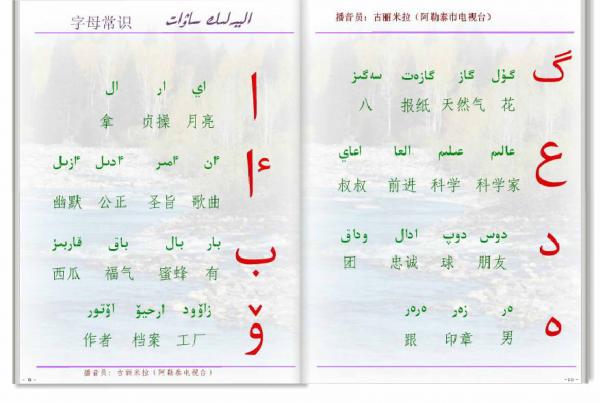 字母常识 ساۋات
ا
اي ار ال
拿 贞操 月亮
ءا
ءان ءامىر ءادىل ءازىل
幽默 公正 圣旨 歌曲
ب
بار بال باق قاربىز
西瓜 福气 蜜蜂 有
ۆ
زاۆود ارحيۆ اۆتور
作者 档案 工厂
播音员：古丽米拉（阿勒泰市电视台）
播音员：古丽米拉（阿勒泰市电视台）
گ
گۇل گاز گازەت سەگىز
八 报纸 天然气 花
ع
عالىم عىلىم العا اعاي
叔叔 前进 科学 科学家
د
دوس دوپ ادال وداق
团 忠诚 球 朋友
ە
ەر زەر
跟 印章 男